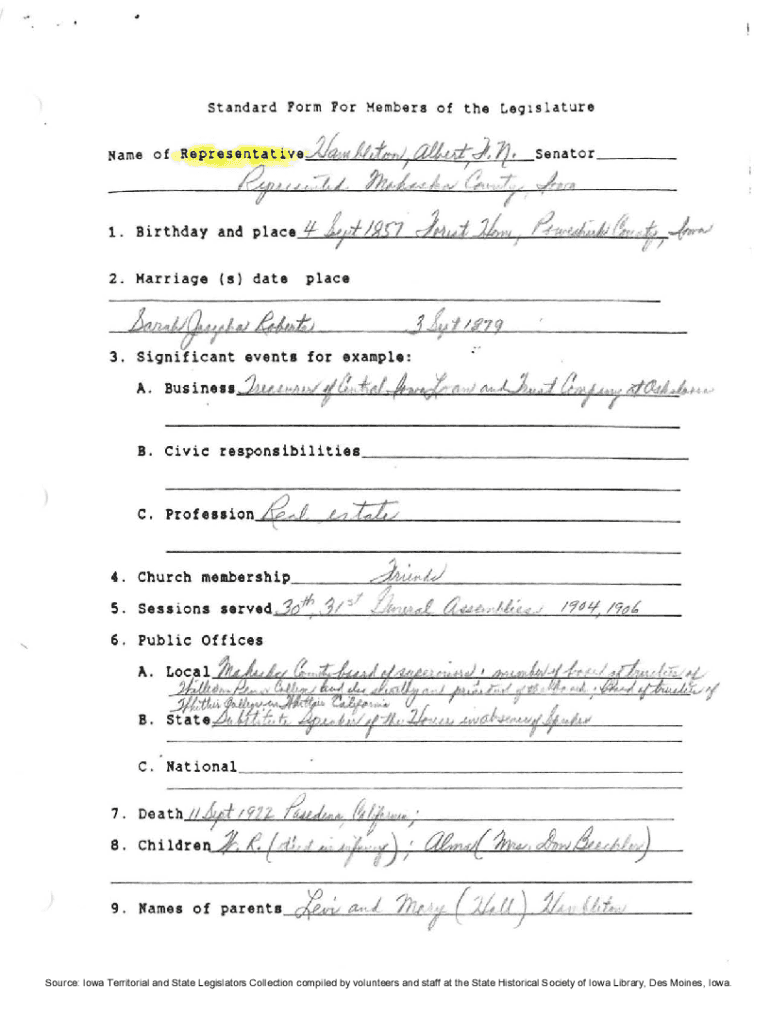 Standard Form For Members of the Legislature
Name of Representative Hambleton, Albert F.N. Senator
Represented Mahaska County, Iowa
1. Birthday and place 4 Sept 1857 Forest Home, Poweshiek County, Iowa
2. Marriage (s) date place
Sarah Josepha Roberts 3 Sept 1879
3. Significant events for example:
A. Business Treasurer of Central Iowa Loan and Trust Company at Oskaloosa
B. Civic responsibilities
C. Profession Real estate
4. Church membership Friends
5. Sessions served 30th, 31st General Assemblies 1904, 1906
6. Public Offices
A. Local County board of supervisors; member of board of trustees of
William Penn College and also and president of the board; board of trustees of
Whittier College in Whittier California
B. State Substitute Speaker of the House in absence of Speaker
C. National
7. Death 11 Sept 1922 Pasedena, California;
8. Children (died in infancy); Alma (Mrs. Don Beechler)
9. Names of parents Levi and Mary (Hall) Hambleton
Source: Iowa Territorial and State Legislators Collection compiled by volunteers and staff at the State Historical Society of Iowa Library, Des Moines, Iowa.